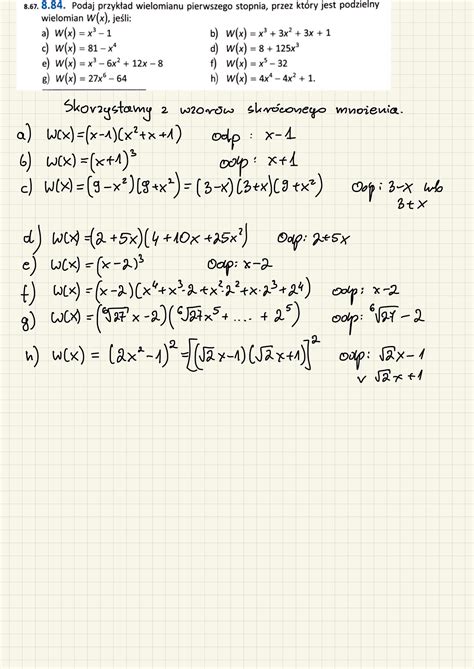 8.67. 8.84. Podaj przykład wielomianu pierwszego stopnia, przez który jest podzielny
wielomian W(x), jeśli:
a) W(x) = x³ − 1 b) W(x) = x³ + 3x² + 3x + 1
c) W(x) = 81 − x⁴ d) W(x) = 8 + 125x³
e) W(x) = x³ − 6x² + 12x − 8 f) W(x) = x⁵ − 32
g) W(x) = 27x⁶ − 64 h) W(x) = 4x⁴ − 4x² + 1.
Skorzystamy z wzorów skróconego mnożenia.
a) W(x)=(x-1)(x²+x+1) odp : x-1
b) W(x)=(x+1)³ odp : x+1
c) W(x)=(9-x²)(9+x²)=(3-x)(3+x)(9+x²) Odp: 3-x lub
3+x
d) W(x)=(2+5x)(4+10x+25x²) Odp: 2+5x
e) W(x)=(x-2)³ Odp: x-2
f) W(x)=(x-2)(x⁴+x³·2+x²·2²+x·2³+2⁴) odp: x-2
g) W(x)=(⁶√27x-2)(⁶√27x⁵+....+2⁵) odp: ⁶√27-2
h) W(x) = (2x²-1)²=[(√2x-1)(√2x+1)]² odp: √2x-1
v √2x+1